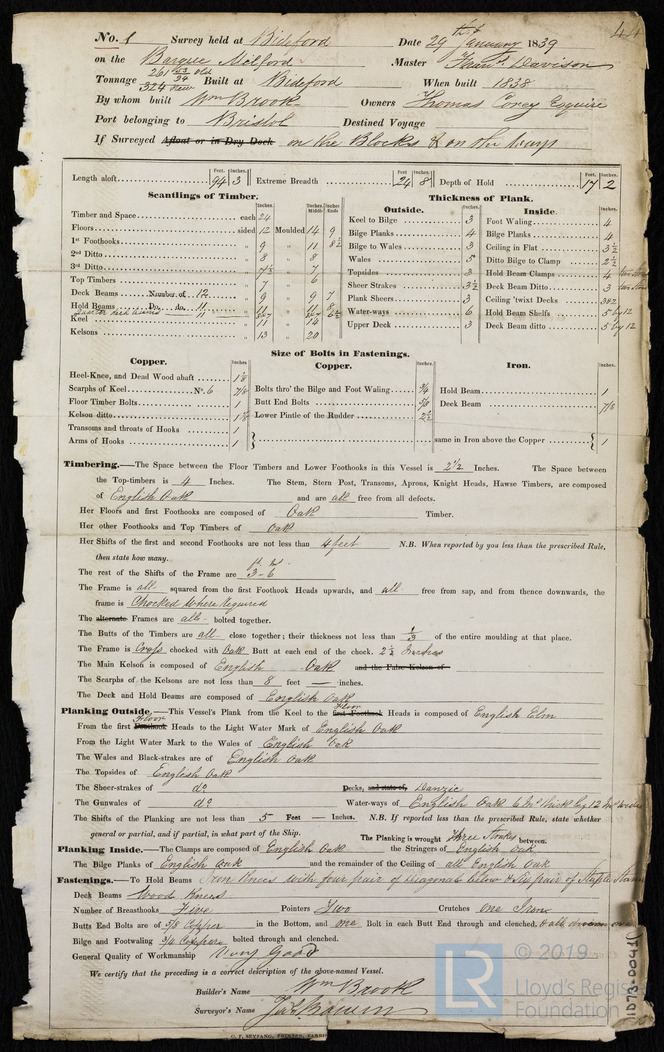 No. 1 Survey held at Bideford Date 29th January 1839
on the Barque Milford Master Davison
Tonnage 261 23/94 Old 324 New Built at Bideford When built 1838
By whom built Wm Brook Owners Thomas Corey Esquire
Port belonging to Bristol Destined Voyage
If Surveyed Afloat or in Dry Dock on the Blocks & on the ways
Length aloft 94 3 Extreme Breadth 24 8 Depth of Hold 17 2
Scantlings of Timber.
Timber and Space each 24
Floors sided 12 Moulded 14 9
1st Foothooks " 9 " 11 8½
2nd Ditto " 8 " 8
3rd Ditto " 7½ " 7
Top Timbers " 7 " 6
Deck Beams Number of 12 " 9 " 9 7
Hold Beams Do. do. 11 " 11 " 11 8
Keel " 11 " 14
Kelsons " 13 " 20
Thickness of Plank.
Outside.
Keel to Bilge 3
Bilge Planks 4
Bilge to Wales 3
Wales 5
Topsides 3
Sheer Strakes 3½
Plank Sheers 3
Water-ways 6
Upper Deck 3
Inside.
Foot Waling 4
Bilge Planks 4
Ceiling in Flat 3½
Ditto Bilge to Clamp 2½
Hold Beam Clamps 4
Deck Beam Ditto 3
Ceiling 'twixt Decks
Hold Beam Shelfs 5 by 12
Deck Beam ditto 5 by 12
Size of Bolts in Fastenings.
Copper.
Heel-Knee, and Dead Wood abaft 1⅛
Scarphs of Keel No. 6 7/8
Floor Timber Bolts 1
Kelson ditto 1⅛
Transoms and throats of Hooks 1
Arms of Hooks 1
Copper.
Bolts thro' the Bilge and Foot Waling 3/4
Butt End Bolts 5/8
Lower Pintle of the Rudder 2½
Iron.
Hold Beam 1
Deck Beam 7/8
same in Iron above the Copper 1
Timbering.—The Space between the Floor Timbers and Lower Foothooks in this Vessel is 2½ Inches. The Space between
the Top-timbers is 4 Inches. The Stem, Stern Post, Transoms, Aprons, Knight Heads, Hawse Timbers, are composed
of English Oak and are all free from all defects.
Her Floors and first Foothooks are composed of Oak Timber.
Her other Foothooks and Top Timbers of Oak
Her Shifts of the first and second Foothooks are not less than 4 feet N.B. When reported by you less than the prescribed Rule,
then state how many.
The rest of the Shifts of the Frame are 3 - 6
The Frame is all squared from the first Foothook Heads upwards, and all free from sap, and from thence downwards, the
frame is Chocked where Required
The alternate Frames are all bolted together.
The Butts of the Timbers are all close together; their thickness not less than 1/3 of the entire moulding at that place.
The Frame is Cross chocked with Oak Butt at each end of the chock. 2½ Inches
The Main Kelson is composed of English Oak and the False Kelson of
The Scarphs of the Kelsons are not less than 8 feet — inches.
The Deck and Hold Beams are composed of English Oak
Planking Outside.—This Vessel's Plank from the Keel to the first Foothook Floor Heads is composed of English Elm
From the first Foothook Floor Heads to the Light Water Mark of English Oak
From the Light Water Mark to the Wales of English Oak
The Wales and Black-strakes are of English Oak
The Topsides of English Oak
The Sheer-strakes of do Decks, and state of, Danzic
The Gunwales of do Water-ways of English Oak
The Shifts of the Planking are not less than 5 Feet — Inches. N.B. If reported less than the prescribed Rule, state whether
general or partial, and if partial, in what part of the Ship. The Planking is wrought Three Strakes between.
Planking Inside.—The Clamps are composed of English Oak the Stringers of English Oak
The Bilge Planks of English Oak and the remainder of the Ceiling of all English Oak
Fastenings.—To Hold Beams Iron Knees with four pair of Diagonals below & Six pair of Staple
Deck Beams Wood Knees
Number of Breasthooks Five Pointers Two Crutches one Iron
Butts End Bolts are of 5/8 Copper in the Bottom, and one Bolt in each Butt End through and clenched,
Bilge and Footwaling 3/4 Copper bolted through and clenched.
General Quality of Workmanship Very Good
We certify that the preceding is a correct description of the above-named Vessel.
Builder's Name Wm Brook
Surveyor's Name
LR © 2019
Lloyd's Register
Foundation